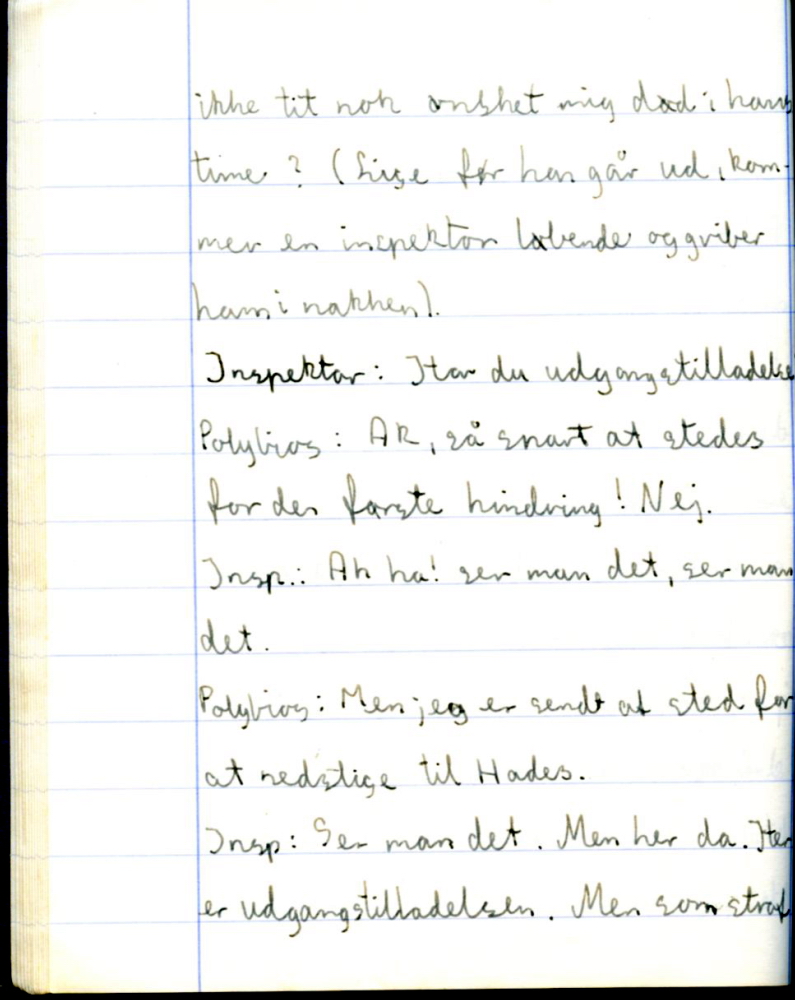 ikke tit nok ønsket mig død i hans
time? (Lige før han går ud, kom-
mer en inspektør løbende og griber
ham i nakken).
Inspektør: Har du udgangstilladelse
Polybios: Ak, så snart at stedes
for den første hindring! Nej.
Insp.: Ah ha! ser man det, ser man
det.
Polybios: Men jeg er sendt af sted for
at nedstige til Hades.
Insp: Ser man det. Men her da. Her
er udgangstilladelsen. Men som straf